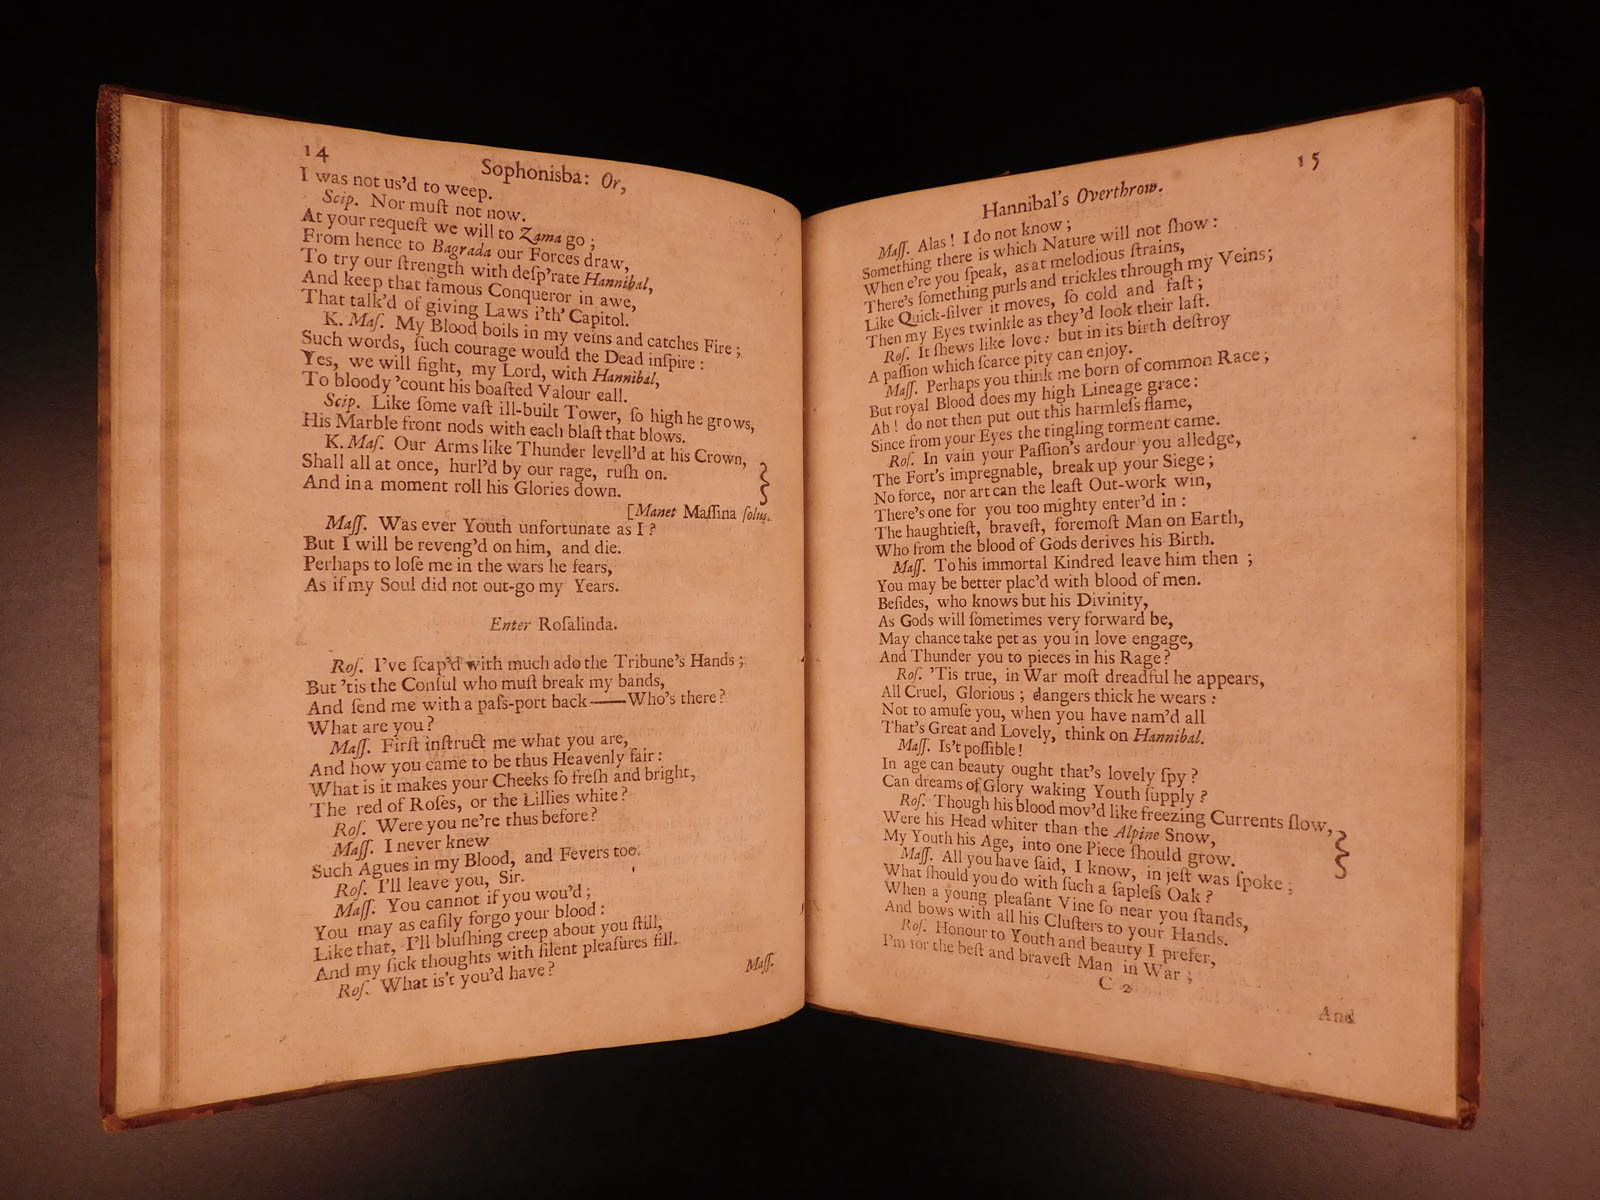 14
Sophonisba: Or,
I was not us'd to weep.
Scip. Nor muſt not now.
At your requeſt we will to Zama go ;
From hence to Bagrada our Forces draw,
To try our ſtrength with deſp'rate Hannibal,
And keep that famous Conqueror in awe,
That talk'd of giving Laws i'th' Capitol.
K. Maſ. My Blood boils in my veins and catches Fire ;
Such words, ſuch courage would the Dead inſpire :
Yes, we will fight, my Lord, with Hannibal,
To bloody 'count his boaſted Valour call.
Scip. Like ſome vaſt ill-built Tower, ſo high he grows,
His Marble front nods with each blaſt that blows.
K. Maſ. Our Arms like Thunder levell'd at his Crown,
Shall all at once, hurl'd by our rage, ruſh on.
And in a moment roll his Glories down.
[Manet Maſſina ſolus.
Maſſ. Was ever Youth unfortunate as I ?
But I will be reveng'd on him, and die.
Perhaps to loſe me in the wars he fears,
As if my Soul did not out-go my Years.
Enter Roſalinda.
Roſ. I've ſcap'd with much ado the Tribune's Hands ;
But 'tis the Conſul who muſt break my bands,
And ſend me with a paſs-port back——Who's there ?
What are you ?
Maſſ. Firſt inſtruct me what you are,
And how you came to be thus Heavenly fair :
What is it makes your Cheeks ſo freſh and bright,
The red of Roſes, or the Lillies white ?
Roſ. Were you ne're thus before ?
Maſſ. I never knew
Such Agues in my Blood, and Fevers too.
Roſ. I'll leave you, Sir.
Maſſ. You cannot if you wou'd ;
You may as eaſily forgo your blood :
Like that, I'll bluſhing creep about you ſtill,
And my ſick thoughts with ſilent pleaſures fill.
Roſ. What is't you'd have ?
Maſſ.
15
Hannibal's Overthrow.
Maſſ. Alas ! I do not know ;
Something there is which Nature will not ſhow :
When e're you ſpeak, as at melodious ſtrains,
There's ſomething purls and trickles through my Veins ;
Like Quick-ſilver it moves, ſo cold and faſt ;
Then my Eyes twinkle as they'd look their laſt.
Roſ. It ſhews like love : but in its birth deſtroy
A paſſion which ſcarce pity can enjoy.
Maſſ. Perhaps you think me born of common Race ;
But royal Blood does my high Lineage grace :
Ah ! do not then put out this harmleſs flame,
Since from your Eyes the tingling torment came.
Roſ. In vain your Paſſion's ardour you alledge,
The Fort's impregnable, break up your Siege ;
No force, nor art can the leaſt Out-work win,
There's one for you too mighty enter'd in :
The haughtieſt, braveſt, foremoſt Man on Earth,
Who from the blood of Gods derives his Birth.
Maſſ. To his immortal Kindred leave him then ;
You may be better plac'd with blood of men.
Beſides, who knows but his Divinity,
As Gods will ſometimes very forward be,
May chance take pet as you in love engage,
And Thunder you to pieces in his Rage ?
Roſ. 'Tis true, in War moſt dreadful he appears,
All Cruel, Glorious ; dangers thick he wears :
Not to amuſe you, when you have nam'd all
That's Great and Lovely, think on Hannibal.
Maſſ. Is't poſſible !
In age can beauty ought that's lovely ſpy ?
Can dreams of Glory waking Youth ſupply ?
Roſ. Though his blood mov'd like freezing Currents ſlow,
Were his Head whiter than the Alpine Snow,
My Youth his Age, into one Piece ſhould grow.
Maſſ. All you have ſaid, I know, in jeſt was ſpoke ;
What ſhould you do with ſuch a ſapleſs Oak ?
When a young pleaſant Vine ſo near you ſtands,
And bows with all his Cluſters to your Hands.
Roſ. Honour to Youth and beauty I prefer,
I'm for the beſt and braveſt Man in War ;
C 2
And